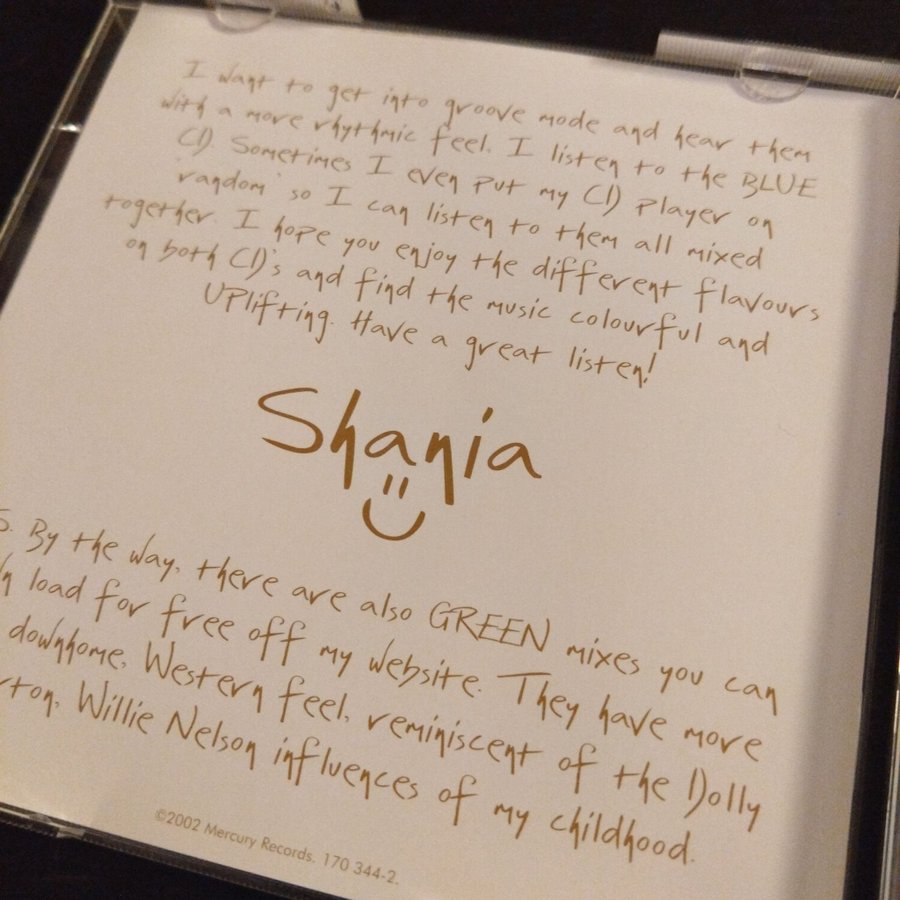 I want to get into groove mode and hear them
with a more rhythmic feel. I listen to the BLUE
CD. Sometimes I even put my CD player on
'random' so I can listen to them all mixed
together. I hope you enjoy the different flavours
on both CD's and find the music colourful and
uplifting. Have a great listen!
Shania
S. By the way, there are also GREEN mixes you can
load for free off my website. They have more
downhome, Western feel, reminiscent of the Dolly
rton, Willie Nelson influences of my childhood.
©2002 Mercury Records. 170 344-2.